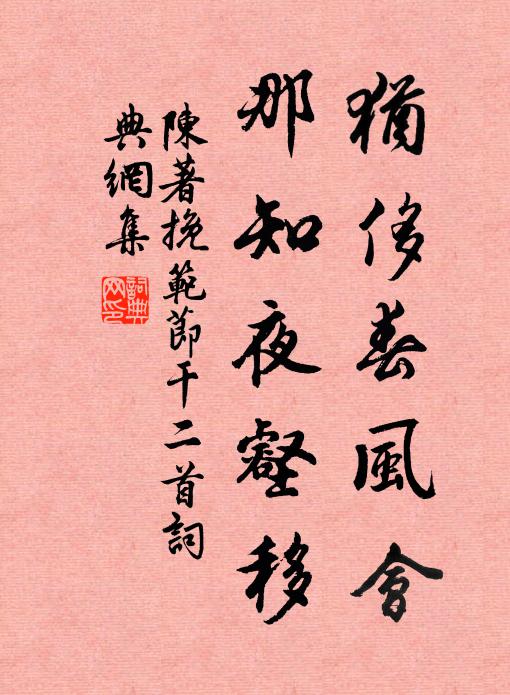 猶侈春風會
那知夜壑移
陳著挽範節干二首詞
典網集
詞典
网印